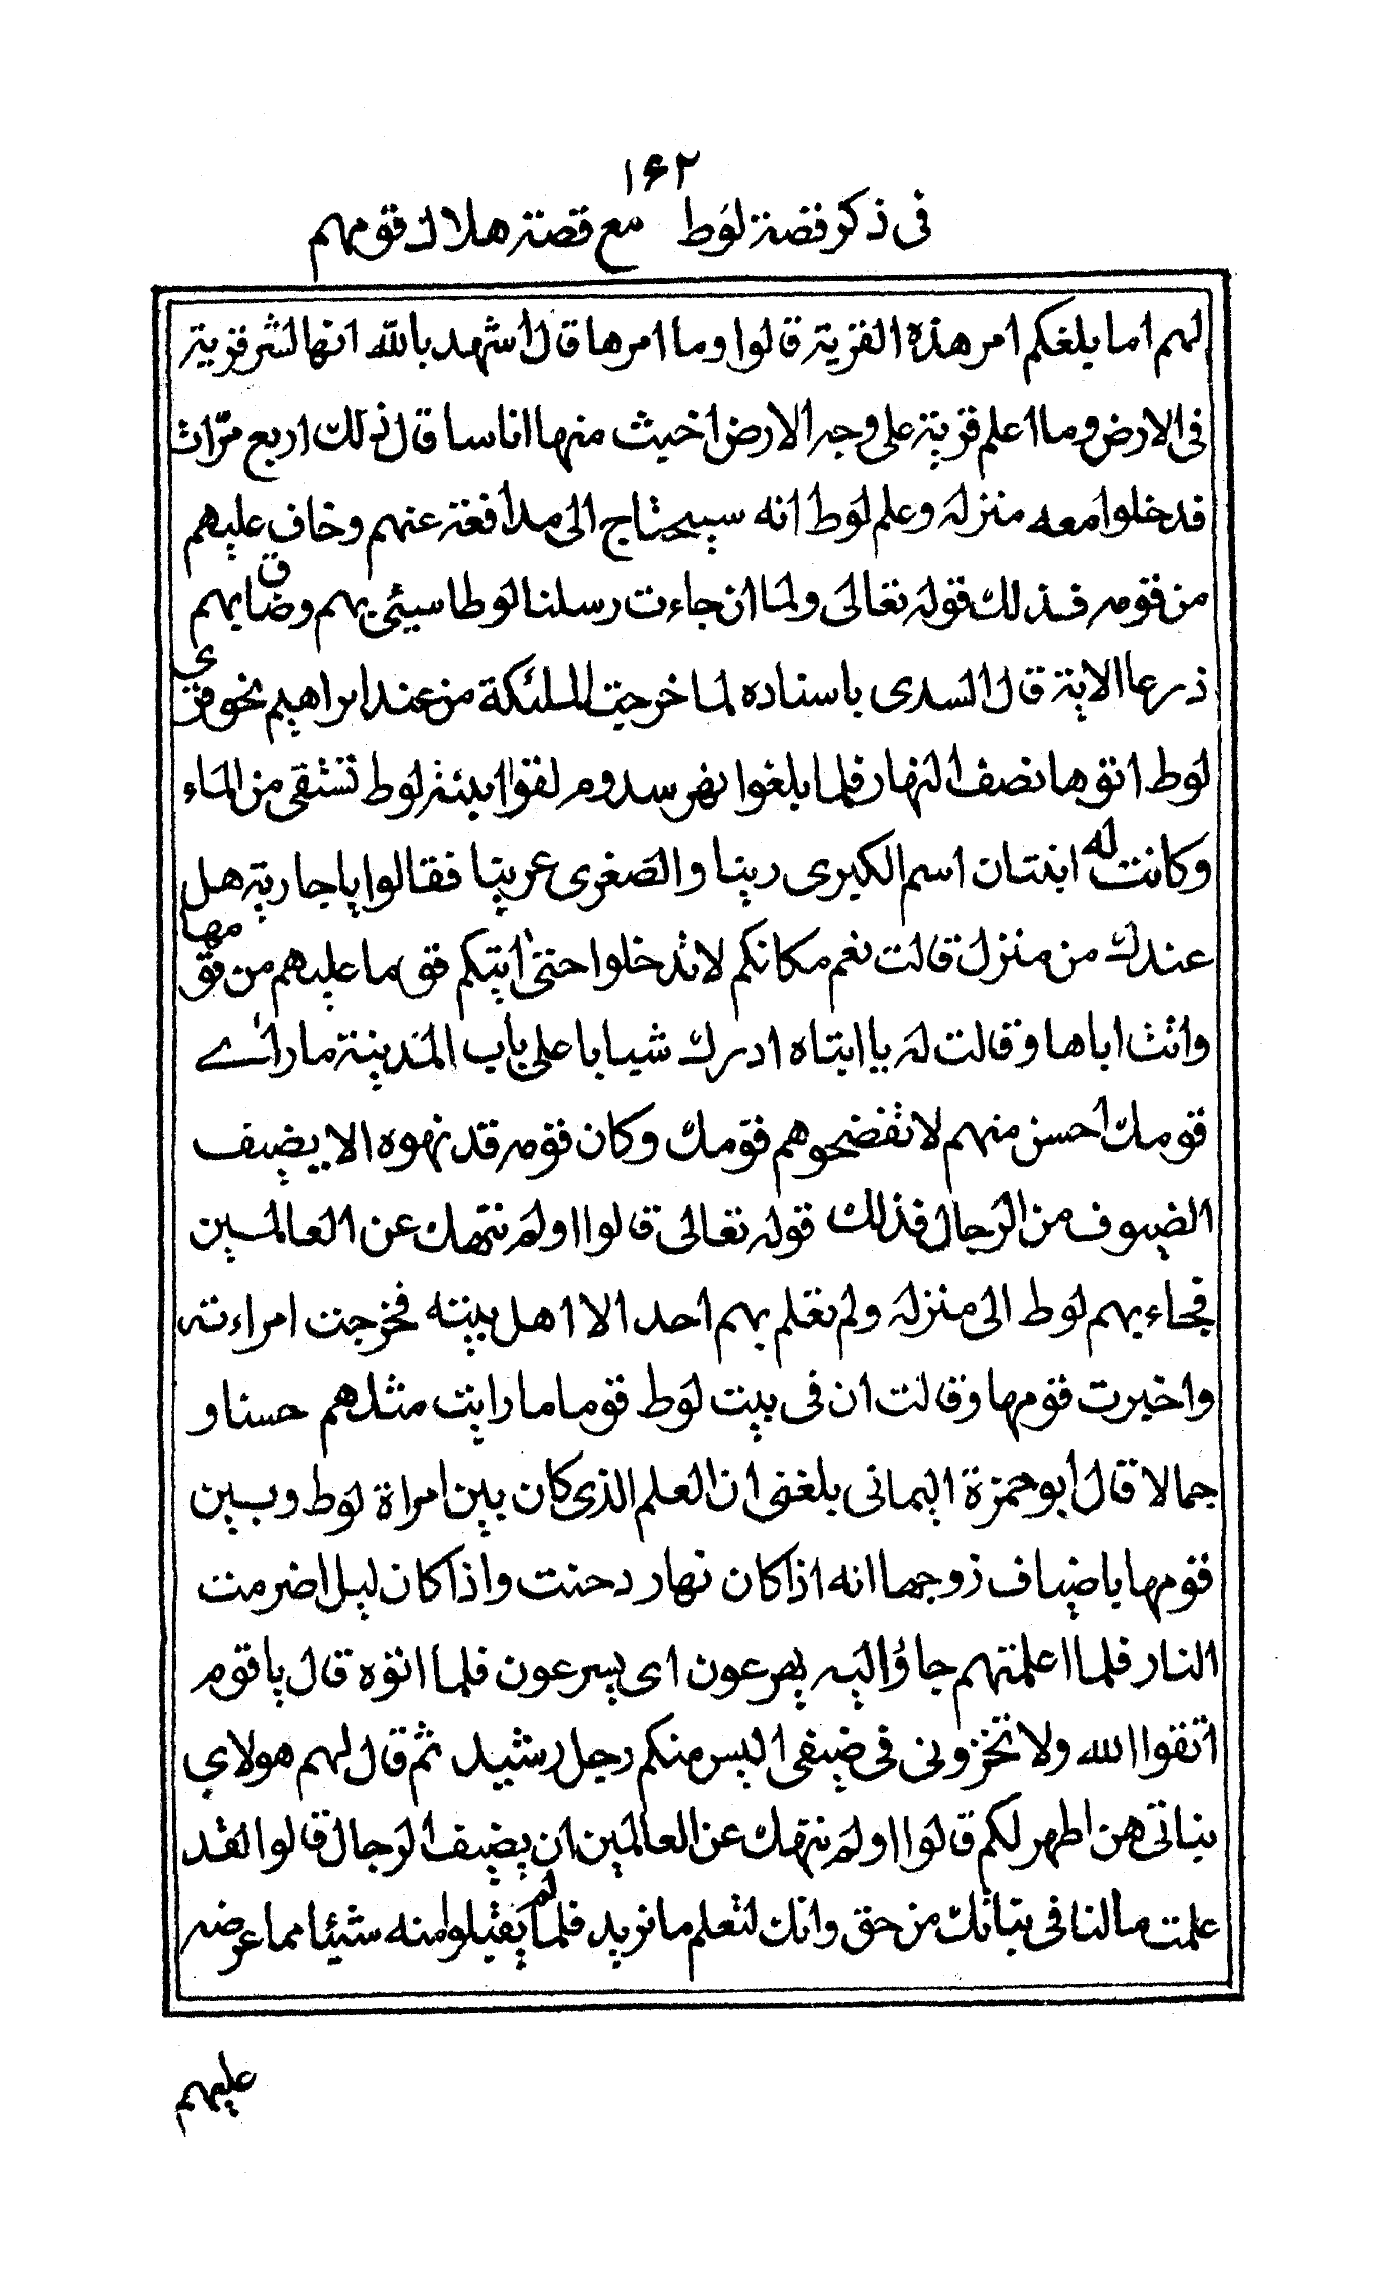 ١٦٢
فى ذكر قصة لوط مع قصة هلاك قومهم
لهم اما بلغكم امر هذه القرية قالوا وما امرها قال اشهد بالله انها لشر قرية
فى الارض وما اعلم قرية على وجه الارض اخبث منها اناسا قال ذلك اربع مرّات
فدخلوا معه منزله وعلم لوط انه سيحتاج الى مدافعة عنهم وخاف عليهم
من قومه فذلك قوله تعالى ولما ان جاءت رسلنا لوطا سيئ بهم وضاق بهم
ذرعا الاية قال السدى باسناده لما خرجت الملئكة من عند ابراهيم نحو قرى
لوط اتوها نصف النهار فلما بلغوا نهر سدوم لقوا ابنة لوط تستقى من الماء
وكانت له ابنتان اسم الكبرى رينا والصغرى عرينا فقالوا يا جارية هل
عندك من منزل قالت نعم مكانكم لا تدخلوا حتى اتيكم فوما عليهم من قومها
واتت اباها وقالت له يا ابتاه ادرك شبابا على باب المدينة ما رائ
قومك احسن منهم لا تفضحوهم قومك وكان قومه قد نهوه الا يضيف
الضيوف من الرجال فذلك قوله تعالى قالوا اولم ننهك عن العالمين
فجاء بهم لوط الى منزله ولم تعلم بهم احد الا اهل بيته فخرجت امراءته
واخبرت قومها وقالت ان فى بيت لوط قوما ما رايت مثلهم حسنا و
جمالا قال ابو حمزة اليمانى بلغنى ان العلم الذى كان بين امراة لوط وبين
قومها باضياف زوجها انه اذا كان نهار دخنت واذا كان ليل اضرمت
النار فلما اعلمتهم جاؤا اليه يهرعون اى يسرعون فلما اتوه قال يا قوم
اتقوا الله ولا تخزونى فى ضيفى اليس منكم رجل رشيد ثم قال لهم هولاي
بناتى هن اطهر لكم قالوا اولم ننهك عن العالمين ان يضيف الرجال قالوا لقد
علمت ما لنا فى بناتك من حق وانك لتعلم ما نريد فلما لم يقبلوا منه شيئا مما عرضه
عليهم